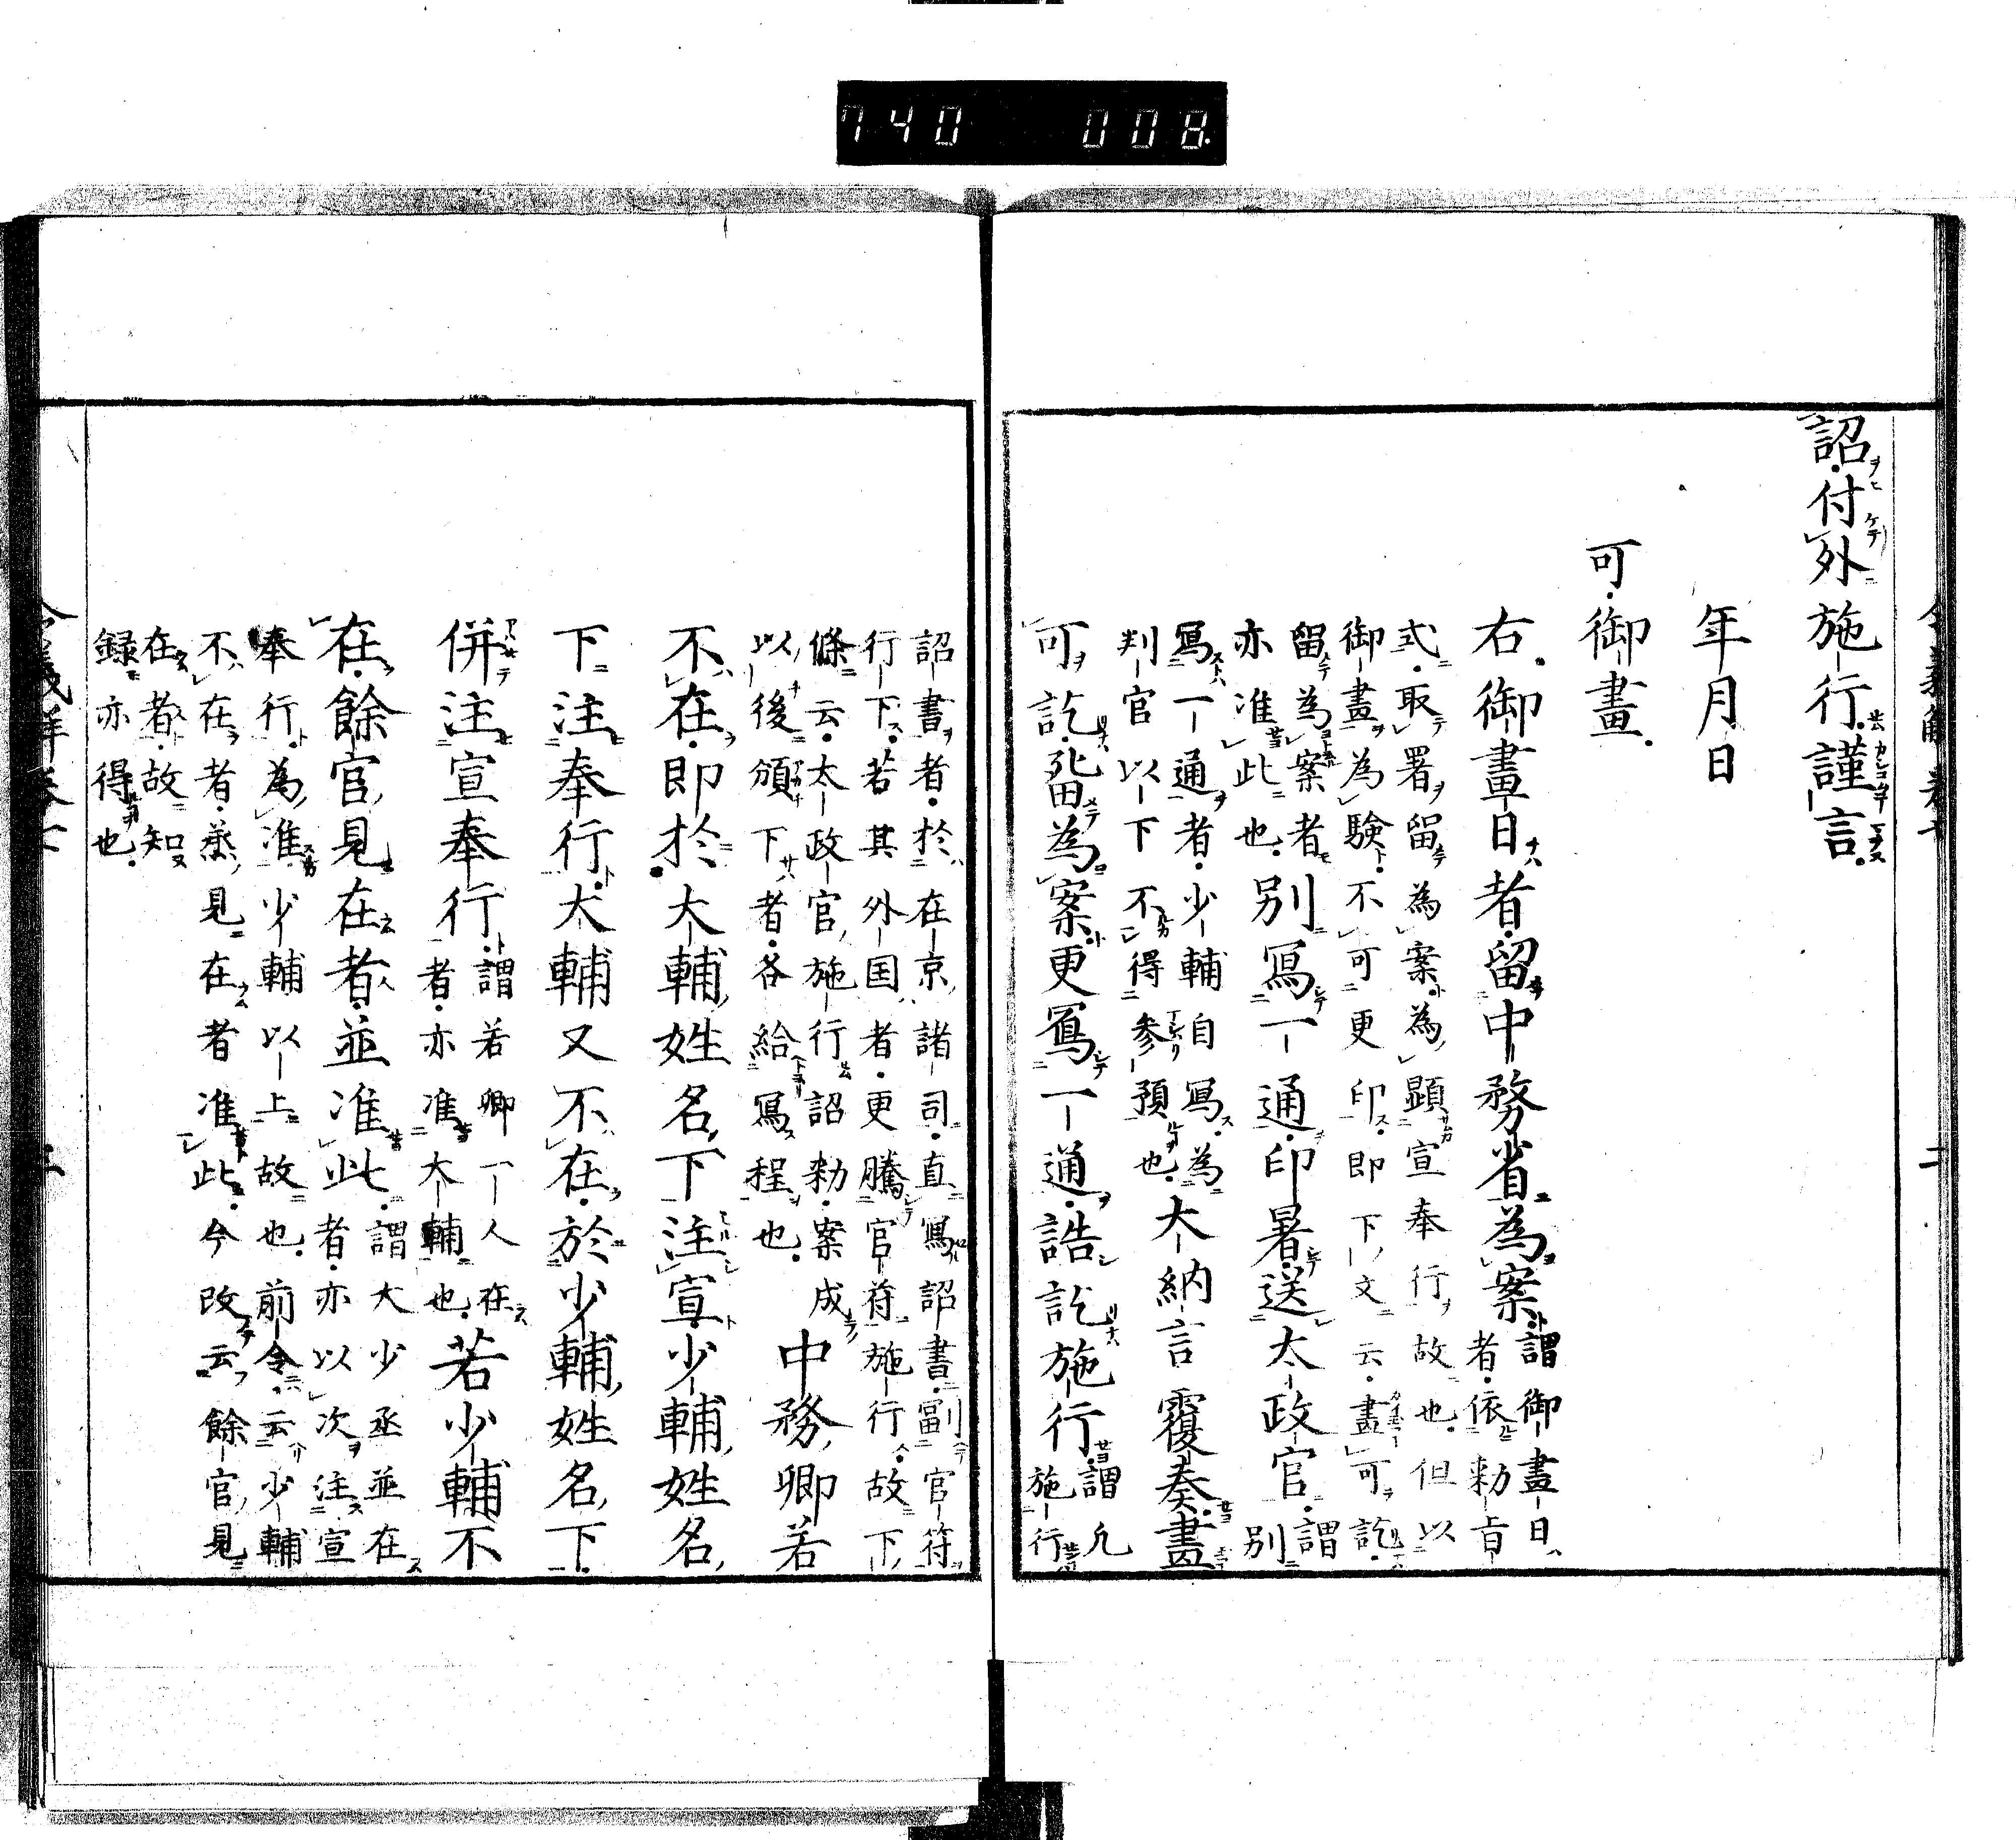 740 008
詔付外施行謹言
年月日
可御畫
右御畫日者留中務省為案謂御畫日
者依勅旨
式取署留為案為顕宣奉行故也但以
御畫為験不可更印即下文云畫可訖
留為案者
亦准此也別寫一通印署送太政官謂
別
寫一通者少輔自寫為
判官以下不得参預也大納言覆奏畫
可訖留為案更寫一通誥訖施行謂凡
施行
詔書者於在京諸司直寫詔書副官符
行下若其外国者更騰官符施行故下
條云太政官施行詔勅案成
以後頒下者各給寫程也中務卿若
不在即於大輔姓名下注宣少輔姓名
下注奉行大輔又不在於少輔姓名下
併注宣奉行謂若卿一人在
者亦准大輔也若少輔不
在餘官見在者並准此謂大少丞並在
者亦以次注宣
奉行為准少輔以上故也前令云少輔
不在者丞見在者准此今改云餘官見
在者故知
録亦得也